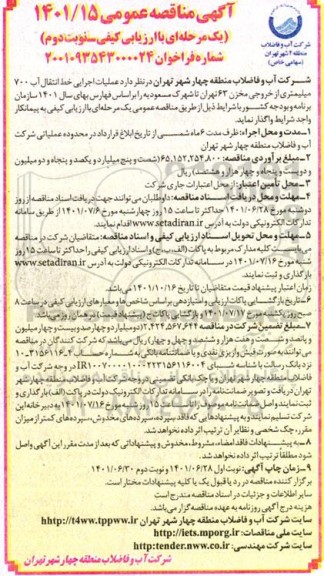 آگهی مناقصه عمومی ۱۴۰۱/۱۵
(یک مرحله‌ای با ارزیابی کیفی سنوبت دوم)
شماره فراخوان ۲۰۰۱۰۹۳۵۴۳۰۰۰۰۲۴
شرکت آب و فاضلاب
منطقه ۴ شهر تهران
(سهامی خاص)
شرکت آب و فاضلاب منطقه چهار شهر تهران در نظر دارد عملیات اجرایی خط انتقال آب ۷۰۰
میلیمتری از خروجی مخزن ۶۲ تهران تا شهرک مسعودیه را بر اساس فهارس بهای سال ۱۴۰۱ سازمان
برنامه و بودجه کشور با شرایط ذیل از طریق مناقصه عمومی یک مرحله‌ای با ارزیابی کیفی به پیمانکار
واجد شرایط واگذار نماید.
۱-مدت و محل اجراء: ظرف مدت ۶ ماه شمسی از تاریخ ابلاغ قرارداد در محدوده عملیاتی شرکت
آب و فاضلاب منطقه چهار شهر تهران
۲-مبلغ برآوردی مناقصه: ۶۵,۱۵۲,۲۵۴,۸۰۰ (شصت و پنج میلیارد و یکصد و پنجاه و دو میلیون
و دویست و پنجاه و چهار هزار و هشتصد) ریال
۳-محل تأمین اعتبار: از محل اعتبارات جاری شرکت
۴-مهلت و محل دریافت اسناد مناقصه: داوطلبان می‌توانند جهت دریافت اسناد مناقصه از روز
دوشنبه مورخ ۱۴۰۱/۰۶/۲۸ حداکثر تا ساعت ۱۵ روز چهارشنبه مورخ ۱۴۰۱/۰۷/۶ از طریق سامانه
تدارکات الکترونیکی دولت به آدرس www.setadiran.ir اقدام نمایند.
۵-مهلت و محل تحویل اسناد ارزیابی کیفی و اسناد مناقصه: متقاضیان شرکت در مناقصه
می‌بایست کلیه مدارک مربوط به پاکات (الف، ب، ج) و اسناد ارزیابی کیفی را حداکثر تا ساعت ۱۵ روز
شنبه مورخ ۱۴۰۱/۰۷/۱۶ در سامانه تدارکات الکترونیکی دولت به آدرس www.setadiran.ir
بارگذاری و ثبت نمایند.
مدت اعتبار پیشنهاد قیمت متقاضیان تا تاریخ ۱۴۰۱/۱۰/۱۶ می‌باشد.
۶-تاریخ بازگشایی پاکات ارزیابی و امتیازدهی بر اساس شاخص‌ها و معیارهای ارزیابی کیفی در ساعت ۸
صبح روز یکشنبه مورخ ۱۴۰۱/۰۷/۱۷ و بازگشایی پاکات ج (پیشنهاد قیمت) در همان روز می‌باشد.
۷-مبلغ تضمین شرکت در مناقصه ۲,۴۲۴,۵۶۷,۶۴۴ (دو میلیارد و چهارصد و بیست و چهار میلیون
و پانصد و شصت و هفت هزار و ششصد و چهل و چهار) ریال می‌باشد که شرکت کنندگان در مناقصه
می‌توانند به صورت فیش واریزی نقدی و یا ضمانتنامه بانکی به شماره حساب
نزد بانک در وجه شرکت آب و
فاضلاب منطقه چهار شهر تهران و یا چک بانکی تضمینی در وجه شرکت آب و فاضلاب منطقه چهار شهر
تهران دریافت و تصویر ضمانتنامه را در سامانه تدارکات الکترونیک دولت در پاکت (الف) بارگذاری و
ثبت نمایند و اصل ضمانتنامه موجود در پاکت (الف) را تا ساعت ۱۵ روز شنبه مورخ ۱۴۰۱/۰۷/۱۶ به دبیرخانه این
شرکت تسلیم نمایند و به پیشنهادهایی که فاقد سپرده، سپرده‌های مخدوش، سپرده‌های کمتر از میزان
مقرر، چک شخصی و نظایر آن ترتیب اثر داده نخواهد شد.
۸-به پیشنهادات فاقد امضاء، مشروط، مخدوش و پیشنهاداتی که بعد از مدت مقرر این آگهی واصل
شود مطلقاً ترتیب اثر داده نخواهد شد.
۹-زمان چاپ آگهی: نوبت اول ۱۴۰۱/۰۶/۲۸ و نوبت دوم ۱۴۰۱/۰۶/۳۰
برگزار کننده مناقصه در رد یا قبول یک یا کلیه پیشنهادات مختار است.
سایر اطلاعات و جزئیات در اسناد مناقصه مندرج است
هزینه درج آگهی روزنامه به عهده مناقصه‌گزار می‌باشد.
سایت شرکت آب و فاضلاب منطقه چهار شهر تهران hhttp://t4ww.tppww.ir
سایت ملی مناقصات: http://iets.mporg.ir
سایت شرکت مهندسی: http:tender.nww.co.ir
شرکت آب و فاضلاب منطقه چهار شهر تهران